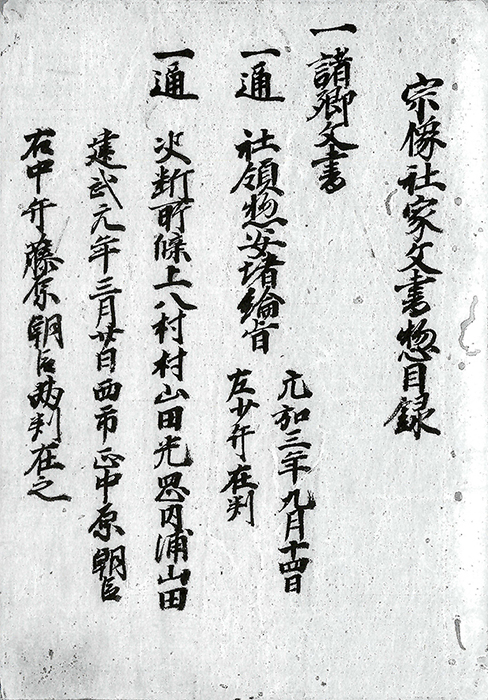 宗像社家文書惣目録
一諸卿文書
一通 社領惣安堵綸旨
元弘三年九月十四日
左少弁在判
一通 決断所條上八村村山田光岡内浦山田
建武元年三月廿日西市正中原朝臣
右中弁藤原朝臣両判在之